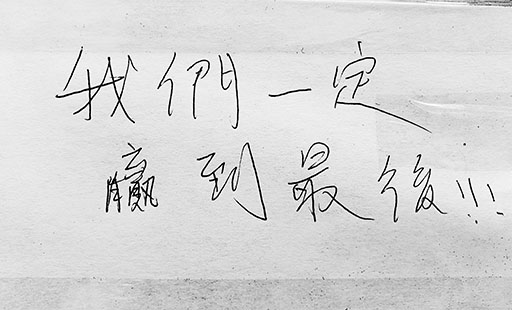 我們一定
贏到最後!!!